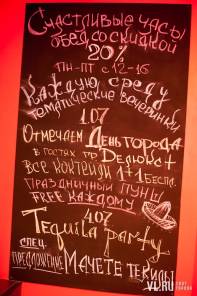 Счастливые часы
обед со скидкой
20%
ПН-ПТ с 12-16
Каждую среду
тематические вечеринки
1.07
Отмечаем День города
в гостях гр. Делюкс+
все коктейли 1+1 беспл.
праздничный пунш
FREE каждому
4.07
Tequila party
спец.
предложение Мачете текилы
VL.RU